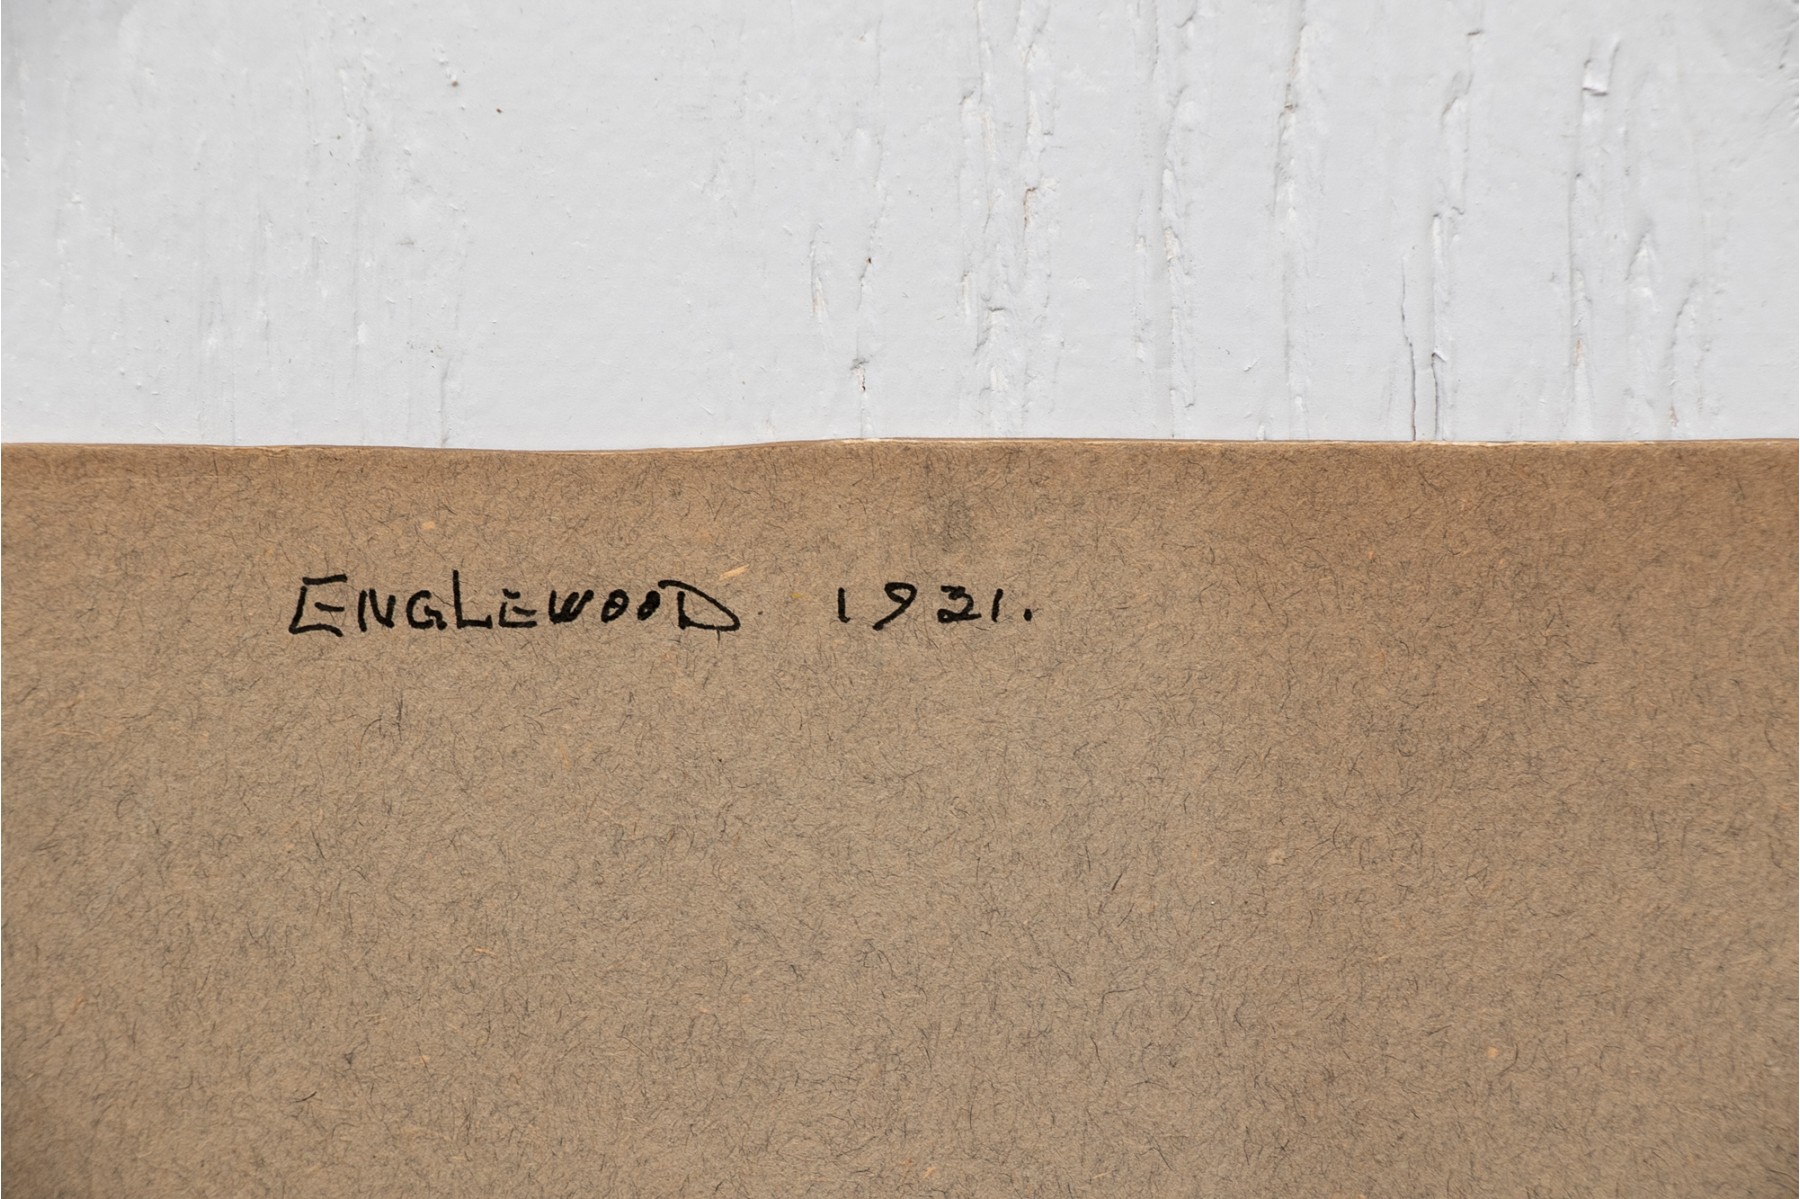 ENGLEWOOD 1921.